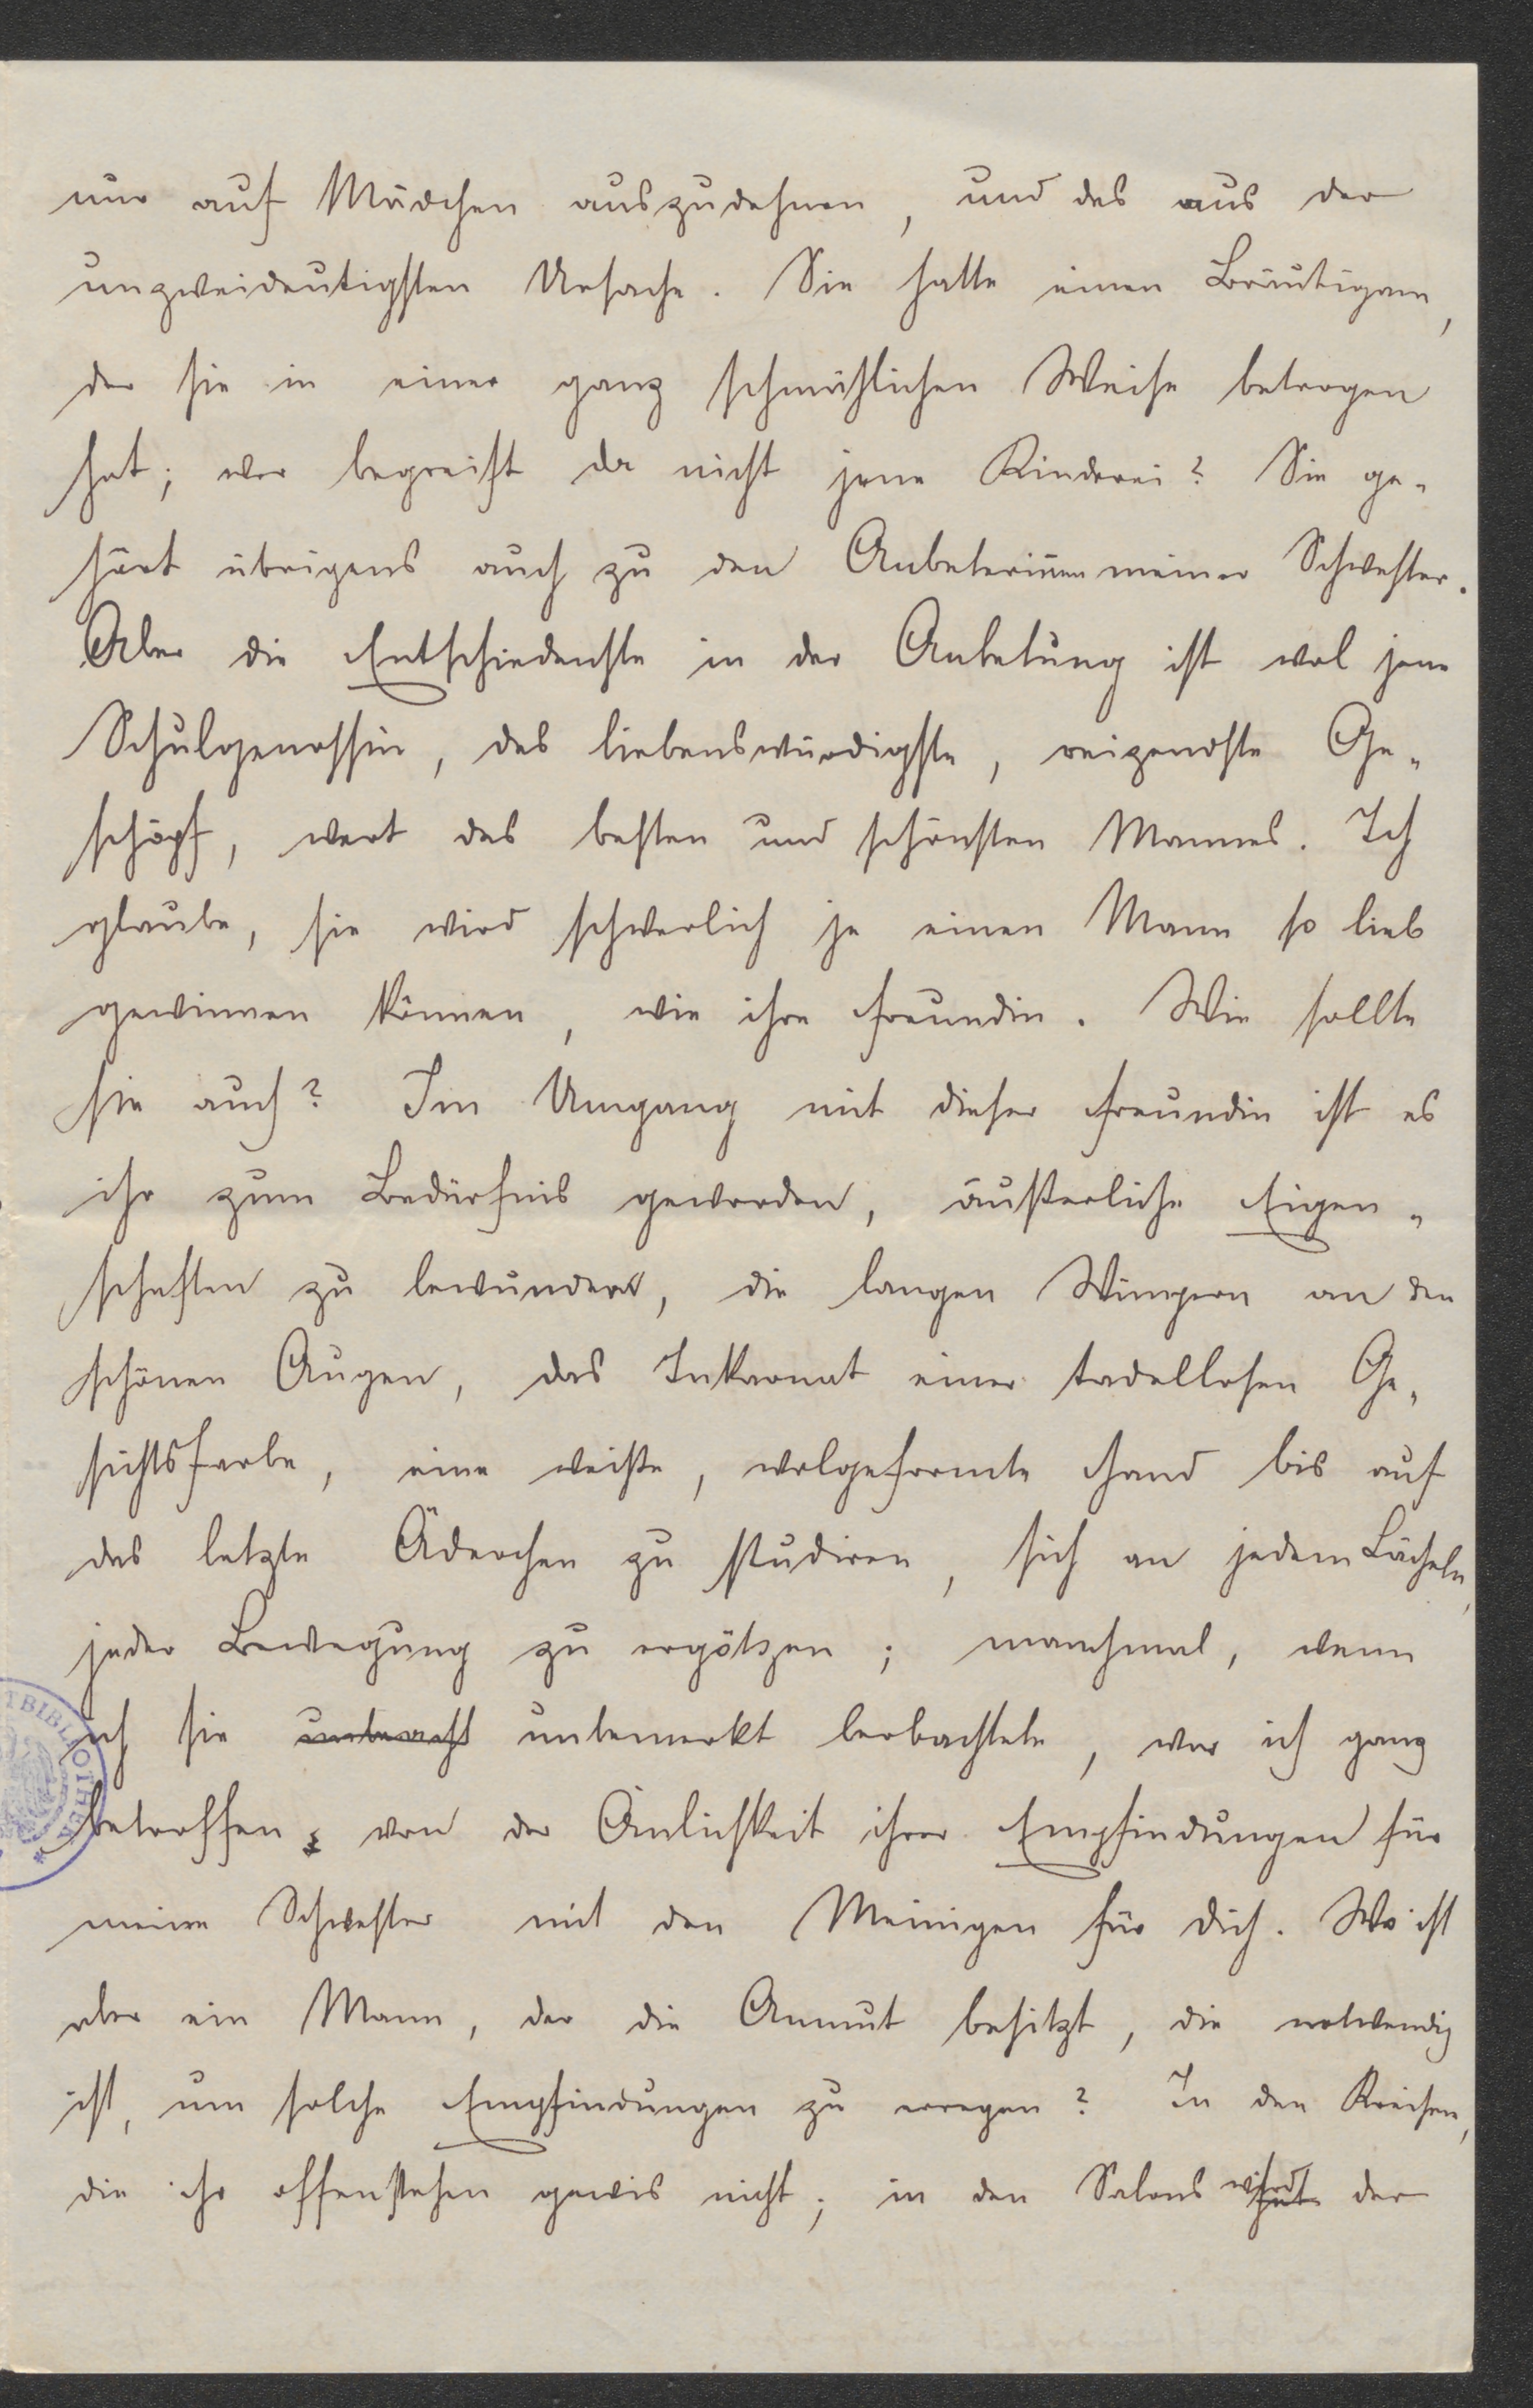 nur auf Mädchen auszudehnen, und das aus der
unzweideutigsten Ursache. Sie hatte einen Bräutigam,
der sie in einer ganz schmählichen Weise betrogen
hat; wer begreift da nicht jene Kinderei? Sie ge-
hört übrigens auch zu den Anbeterinnen meiner Schwester.
Aber die Entschiedenste in der Anbetung ist wol jene
Schulgenossin, das liebenswürdigste, reizendste Ge-
schöpf, wert des besten und schönsten Mannes. Ich
glaube, sie wird schwerlich je einen Mann so lieb
gewinnen können, wie ihre Freundin. Wie sollte
sie auch? Im Umgang mit dieser Freundin ist es
ihr zum Bedürfnis geworden, äußerliche Eigen-
schaften zu bewundern, die langen Wimpern an den
schönen Augen, das Inkarnat einer tadellosen Ge-
sichtsfarbe, eine weiße, wolgeformte Hand bis auf
das letzte Äderchen zu studiren, sich an jedem Lächeln,
jeder Bewegung zu ergötzen; manchmal, wenn
ich sie unbemerkt beobachtete, war ich ganz
betroffen von der Änlichkeit ihrer Empfindungen für
meine Schwester mit den Meinigen für dich. Wo ist
aber ein Mann, der die Anmut besitzt, die notwendig
ist, um solche Empfindungen zu erregen? In den Kreisen,
die ihr offenstehen gewis nicht; in den Salons wird der
TBIBLIOTHEK